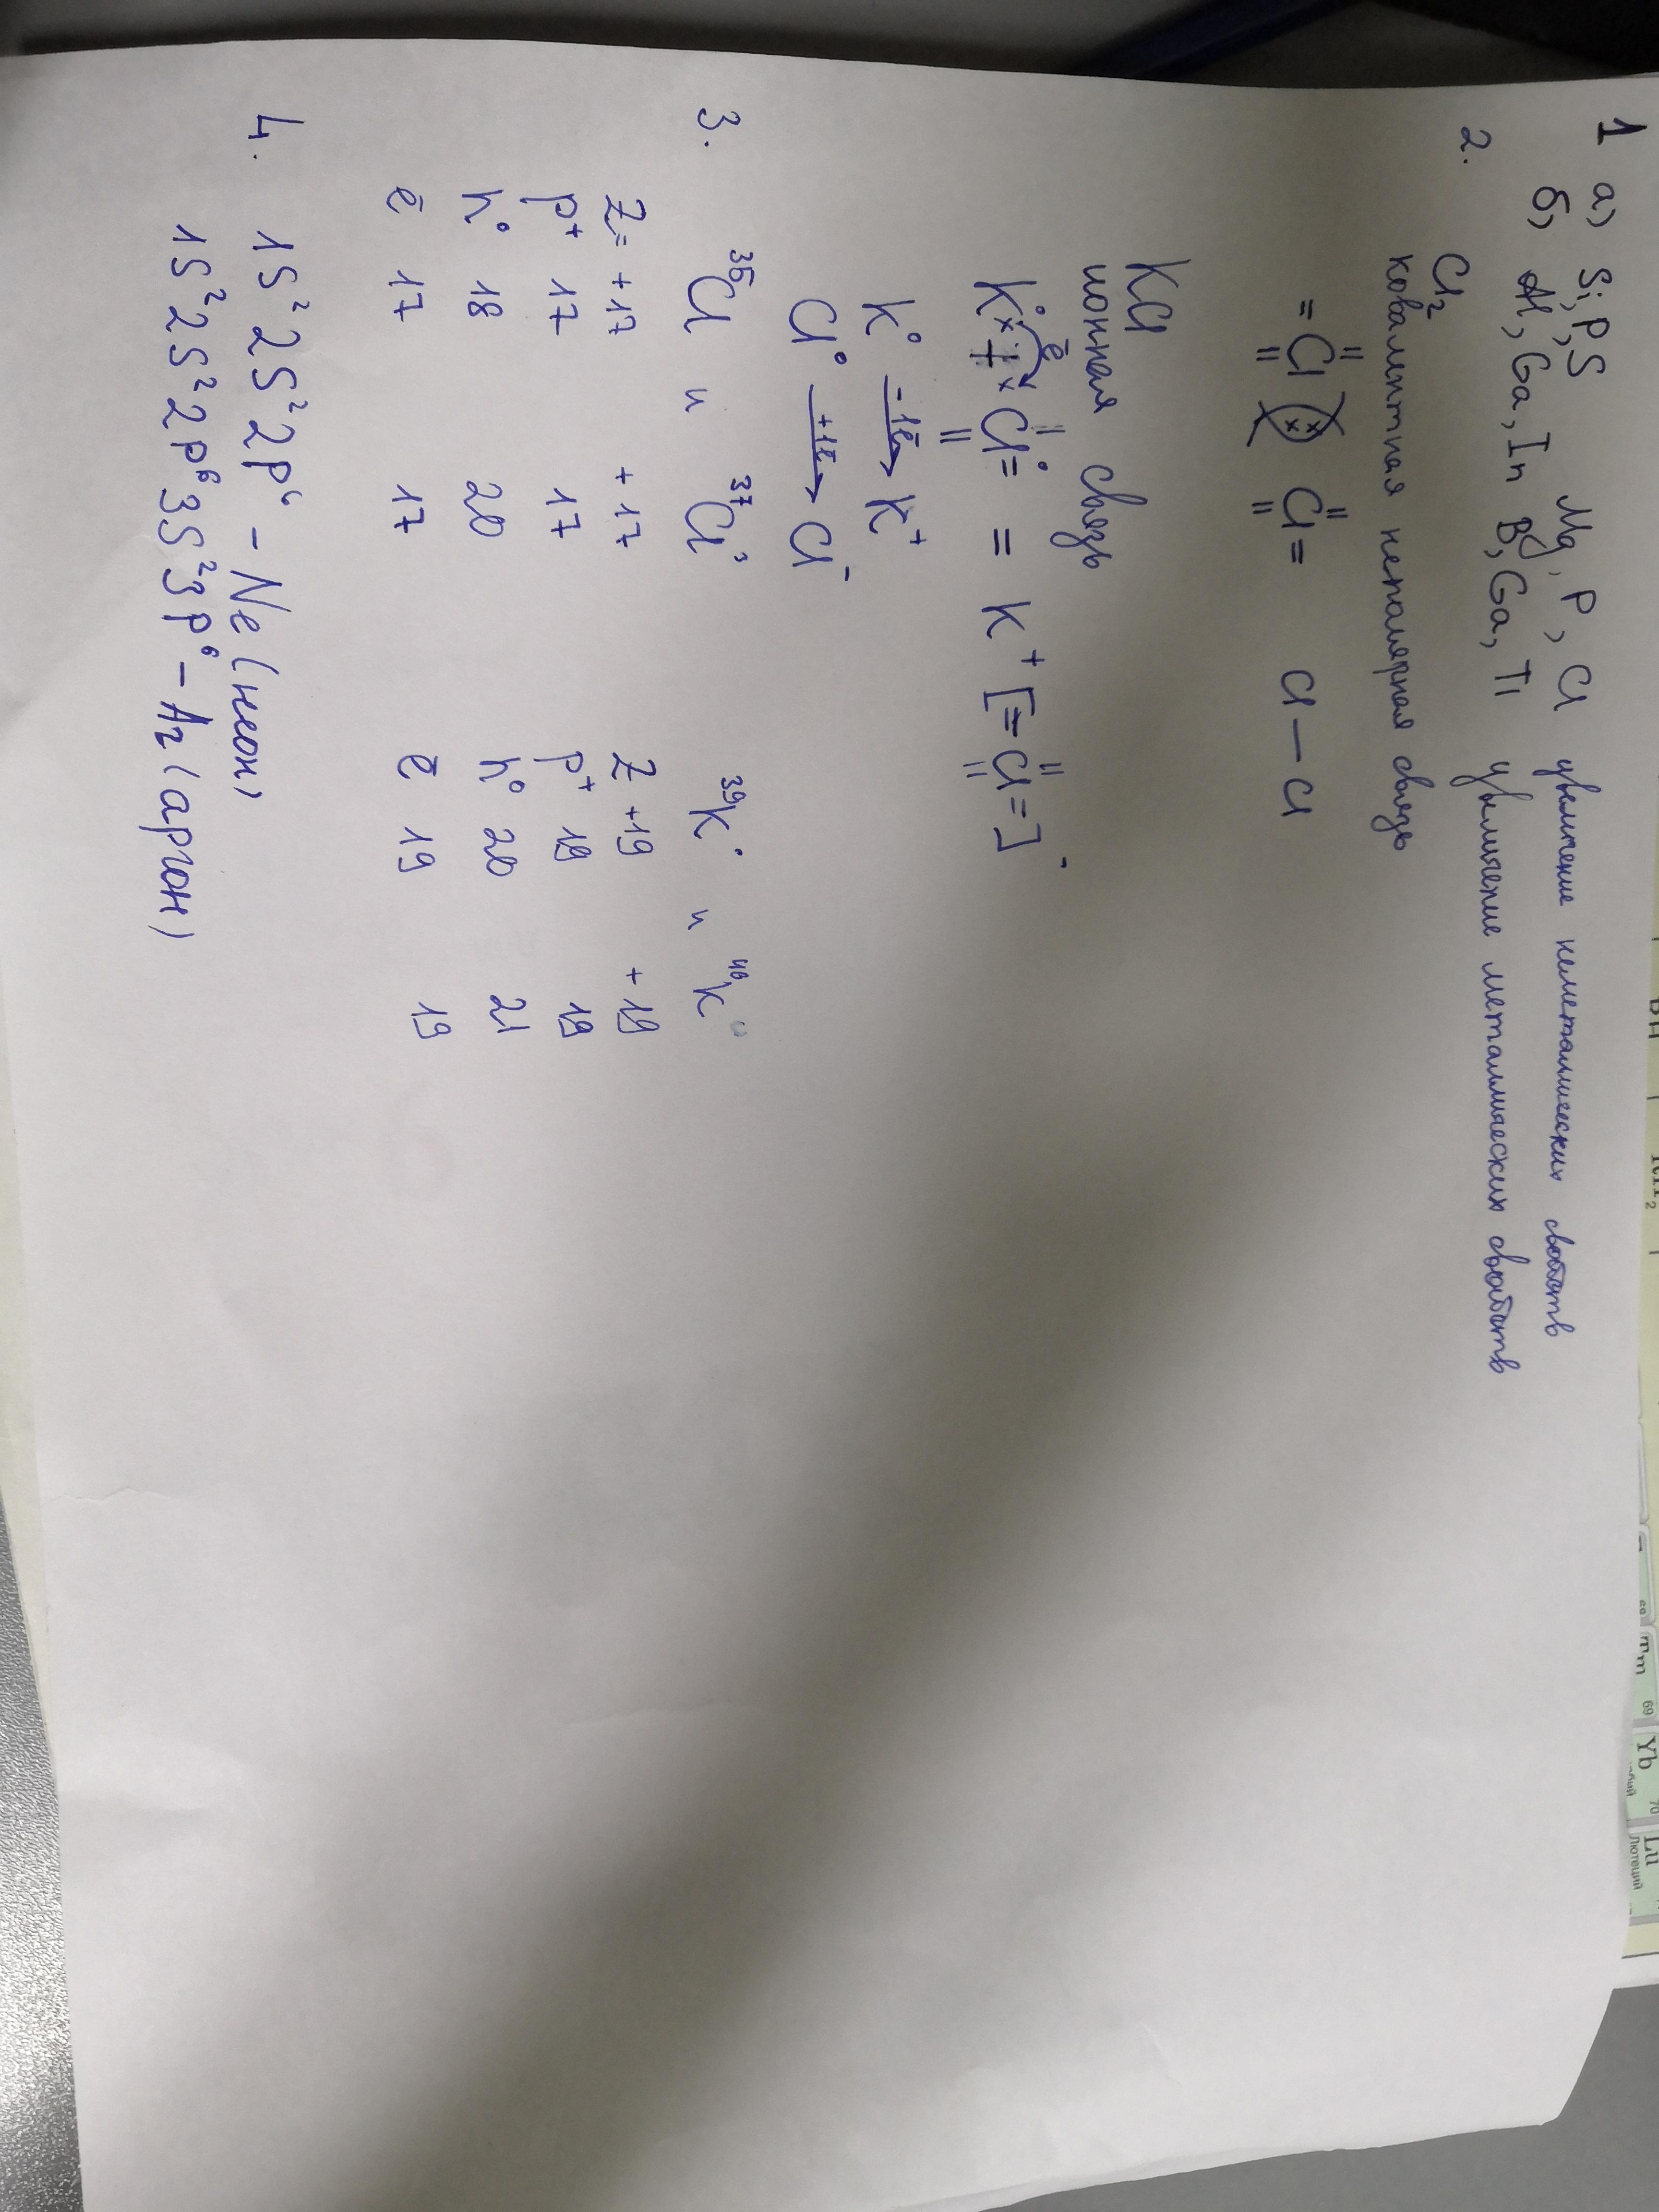 1 а) Si, P, S Mg, P, Cl увеличение неметаллических свойств
б) Al, Ga, In B, Ga, Tl увеличение металлических свойств
2. Cl₂
ковалентная неполярная связь
= Cl ( ×× ) Cl = Cl — Cl
KCl
ионная связь
ē
K × Cl = = K⁺ [= Cl =]⁻
K⁰ -1ē→ K⁺
Cl⁰ +1ē→ Cl⁻
3. ³⁵Cl и ³⁷Cl ³⁹K и ⁴⁰K
Z= +17 +17 Z +19 +19
p⁺ 17 17 p⁺ 19 19
n⁰ 18 20 n⁰ 20 21
ē 17 17 ē 19 19
4. 1S² 2S² 2P⁶ – Ne (неон)
1S² 2S² 2P⁶ 3S² 3P⁶ – Ar (аргон)
Tm 69
Yb 70
Lu
Лютеций